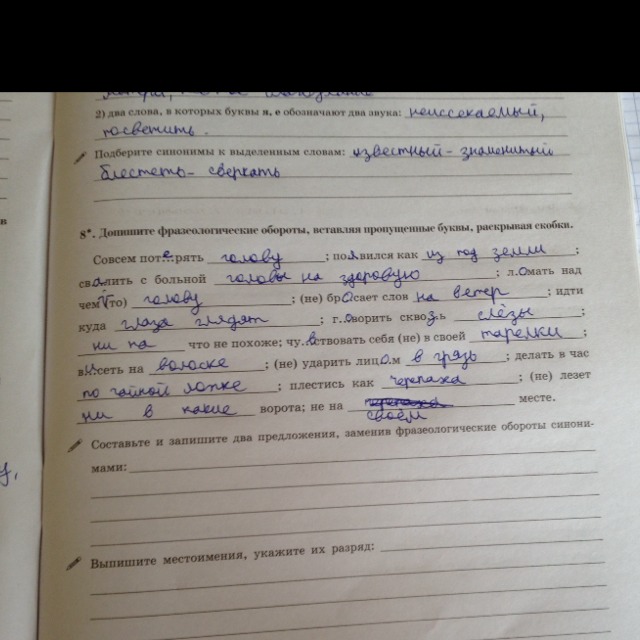 2) два слова, в которых буквы я, е обозначают два звука: неиссекаемый,
посветить.
Подберите синонимы к выделенным словам: известный - знаменитый
блестеть - сверкать
8*. Допишите фразеологические обороты, вставляя пропущенные буквы, раскрывая скобки.
Совсем пот.е.рять голову ; поя́вился как из под земли ;
свалить с больной головы на здоровую ; л.омать над
чем(то) голову ; (не) бросает слов на ветер ; идти
куда глаза глядят ; г.оворить сквозь слёзы ;
ни на что не похоже; чу.вствовать себя (не) в своей тарелки ;
висеть на волоске ; (не) ударить лицом в грязь ; делать в час
по чайной ложке ; плестись как черепаха ; (не) лезет
ни в какие ворота; не на своём месте.
Составьте и запишите два предложения, заменив фразеологические обороты синони-
мами:
Выпишите местоимения, укажите их разряд: